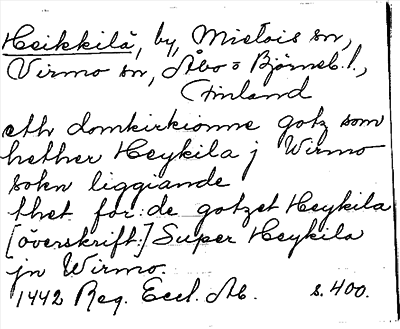 Heikkilä, by, Mietois sn,
Virmo sn, Åbo o Björneb. l.,
Finland
eth domkirkionne gotz som
hether Heykila j Wirmo
sokn liggiande
thet för:de gotzet Heykila
[överskrift:] Super Heykila
jn Wirmo.
1442 Reg. Eccl. Ab. s. 400.